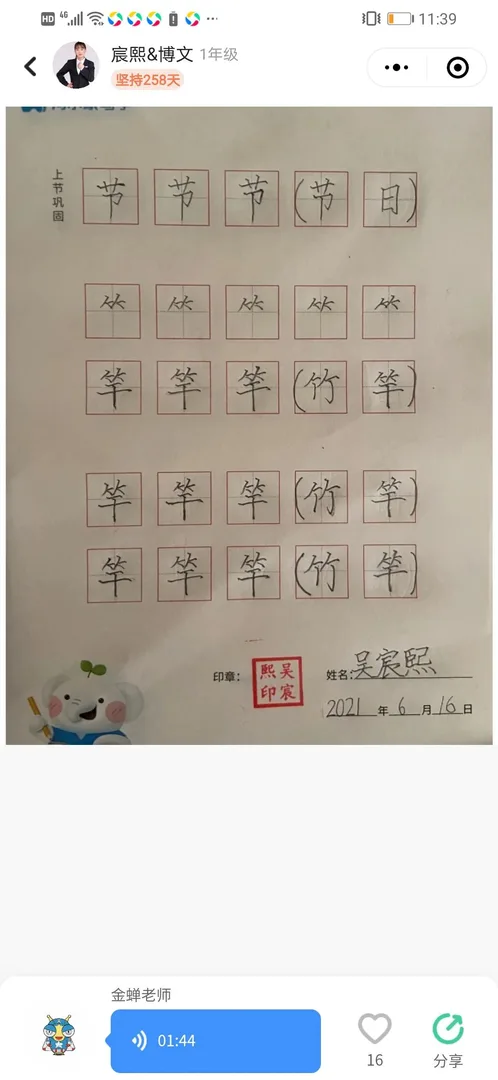 HD 4G 11:39
宸熙&博文 1年级
坚持258天
上节巩固
节 节 节 (节 日)
⺮ ⺮ ⺮ ⺮ ⺮
竿 竿 竿 (竹 竿)
竿 竿 竿 (竹 竿)
竿 竿 竿 (竹 竿)
印章:
熙吴
印宸
姓名:吴宸熙
2021 年 6 月 16 日
金蝉老师
01:44
16
分享